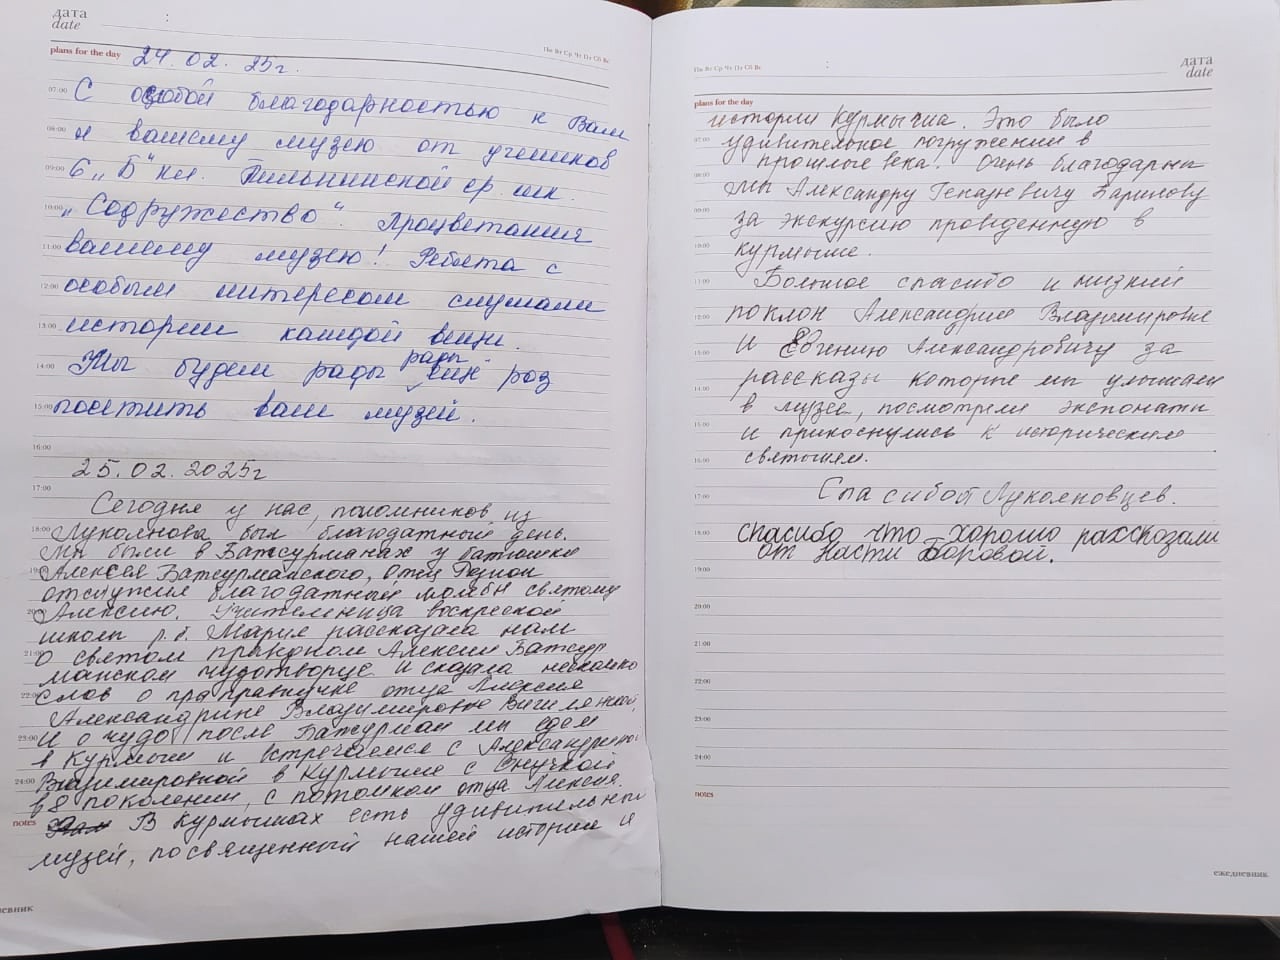 дата
date
:
plans for the day
Пн Вт Ср Чт Пт Сб Вс
24.02.25г.
07:00 С особой благодарностью к Вам
08:00 и вашему музею от учеников
09:00 6 „Б" кл. Пильнинской ср. шк.
10:00 „Содружество". Процветания
11:00 вашему музею! Ребята с
12:00 особым интересом слушали
13:00 истории каждой вещи.
рады
14:00 Мы будем рады ещё раз
15:00 посетить ваш музей.
16:00
25.02.2025г
17:00
Сегодня у нас, паломников из
18:00 Лукоянова был благодатный день.
Мы были в Батсурманах у батюшки
19:00 Алексея Батсурманского, отец
отслужил благодатный молебн святому
20:00 Алексию. Учительница воскресной
школы р.б. Мария рассказала нам
21:00 о святом праведном Алексии Батсур
манском чудотворце и сказала несколько
22:00 слов о пра правнучке отца Алексия
Александрине Владимировне
23:00 И о чудо! после Батсурман мы едем
в Курмыш и встречаемся с Александриной
24:00 Владимировной в Курмыше с внучкой
в 8 поколении, с потомком отца Алексия.
notes В Курмышах есть удивительный
музей, посвященный нашей истории и
ежедневник
Пн Вт Ср Чт Пт Сб Вс
:
дата
date
plans for the day
истории Курмыша. Это было
07:00 удивительное погружение в
прошлые века! Очень благодарны
08:00 мы Александру Генадьевичу Баринову
09:00 за экскурсию проведенную в
10:00 Курмыше.
11:00 Большое спасибо и низкий
12:00 поклон Александрине Владимировне
13:00 и Евгению Александровичу за
рассказы которые мы услышали
14:00 в музее, посмотрели экспонаты
15:00 и прикоснулись к историческим
16:00 святыням.
17:00 Спасибо от Лукояновцев.
18:00 спасибо что хорошо рассказали
от Насти Боровой.
19:00
20:00
21:00
22:00
23:00
24:00
notes
ежедневник